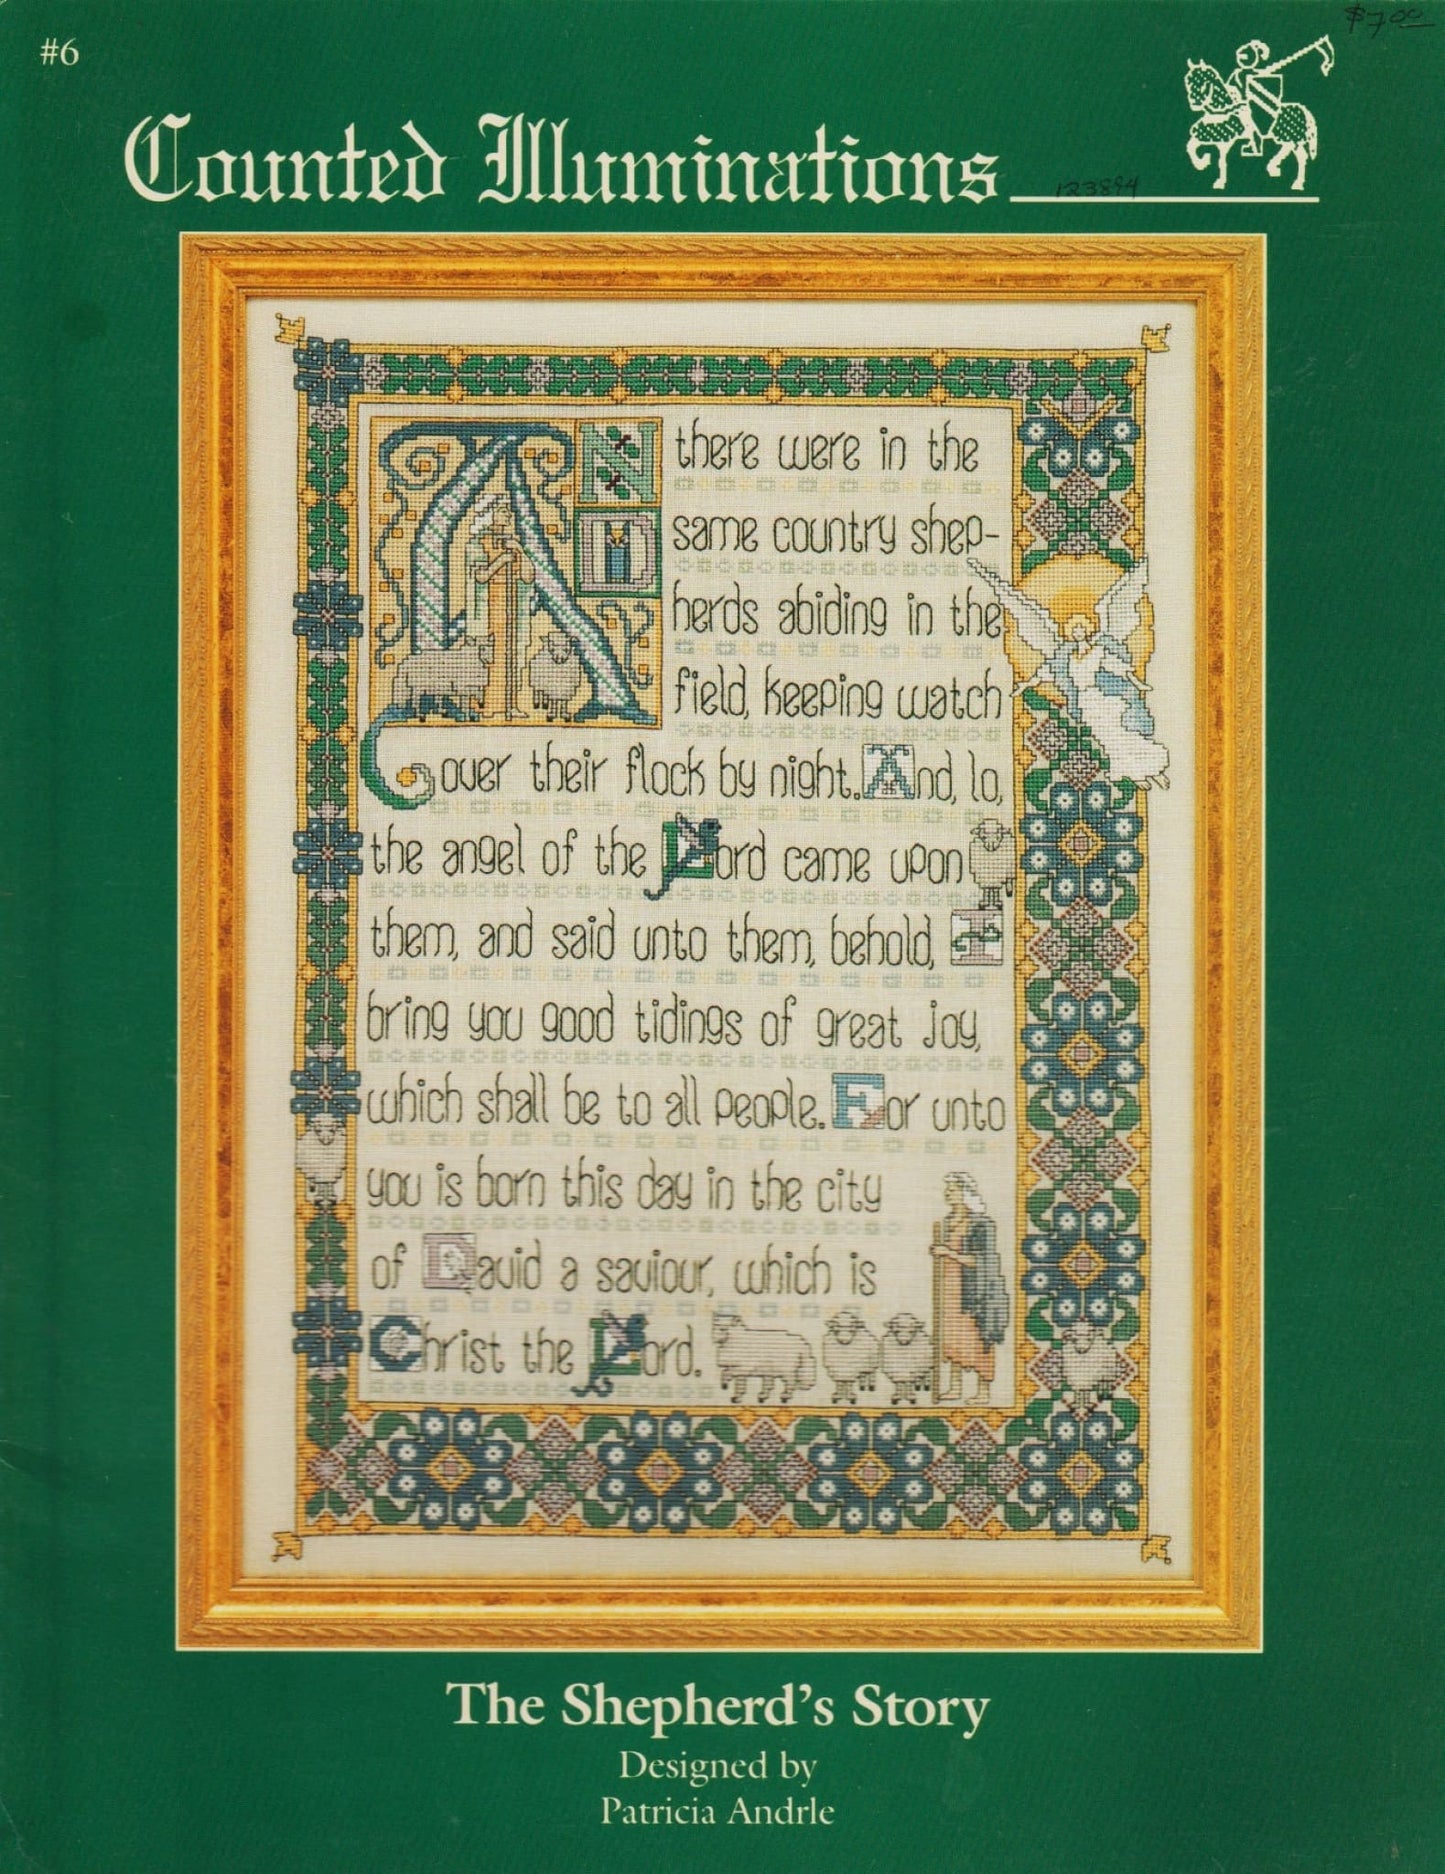 $7.00
#6
Counted Illuminations
123894
AND there were in the
same country shep-
herds abiding in the
field, keeping watch
over their flock by night. And, lo,
the angel of the Lord came upon
them, and said unto them, behold, I
bring you good tidings of great joy,
which shall be to all people. For unto
you is born this day in the city
of David a saviour, which is
Christ the Lord.
The Shepherd's Story
Designed by
Patricia Andrle